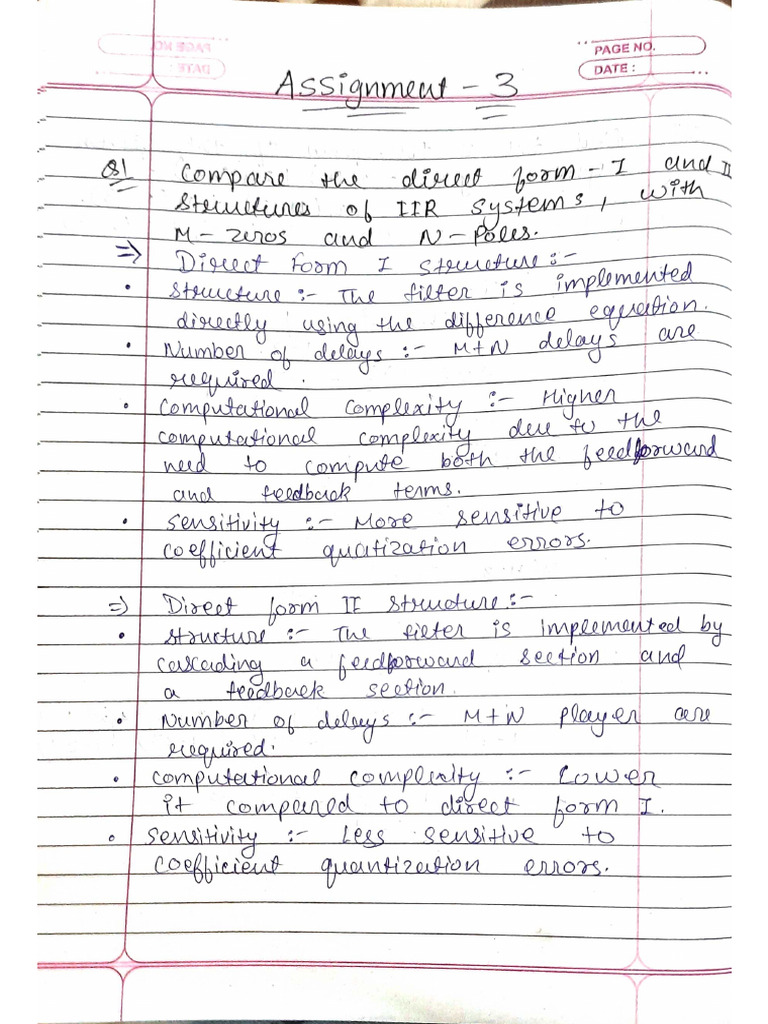 PAGE NO.
DATE :
Assignment - 3
Q1 Compare the direct form - I and II
structures of IIR systems, with
M-zeros and N-Poles.
=> Direct Form I structure :-
• structure :- The filter is implemented
directly using the difference equation.
• Number of delays :- M+N delays are
required.
• computational complexity :- Higher
computational complexity due to the
need to compute both the feedforward
and feedback terms.
• sensitivity :- More sensitive to
coefficient quatization errors.
=> Direct form II structure :-
• structure :- The filter is implemented by
cascading a feedforward section and
a feedback section.
• Number of delays :- M+N player are
required.
• computational complexity :- Lower
it compared to direct form I.
• sensitivity :- Less sensitive to
coefficient quantization errors.